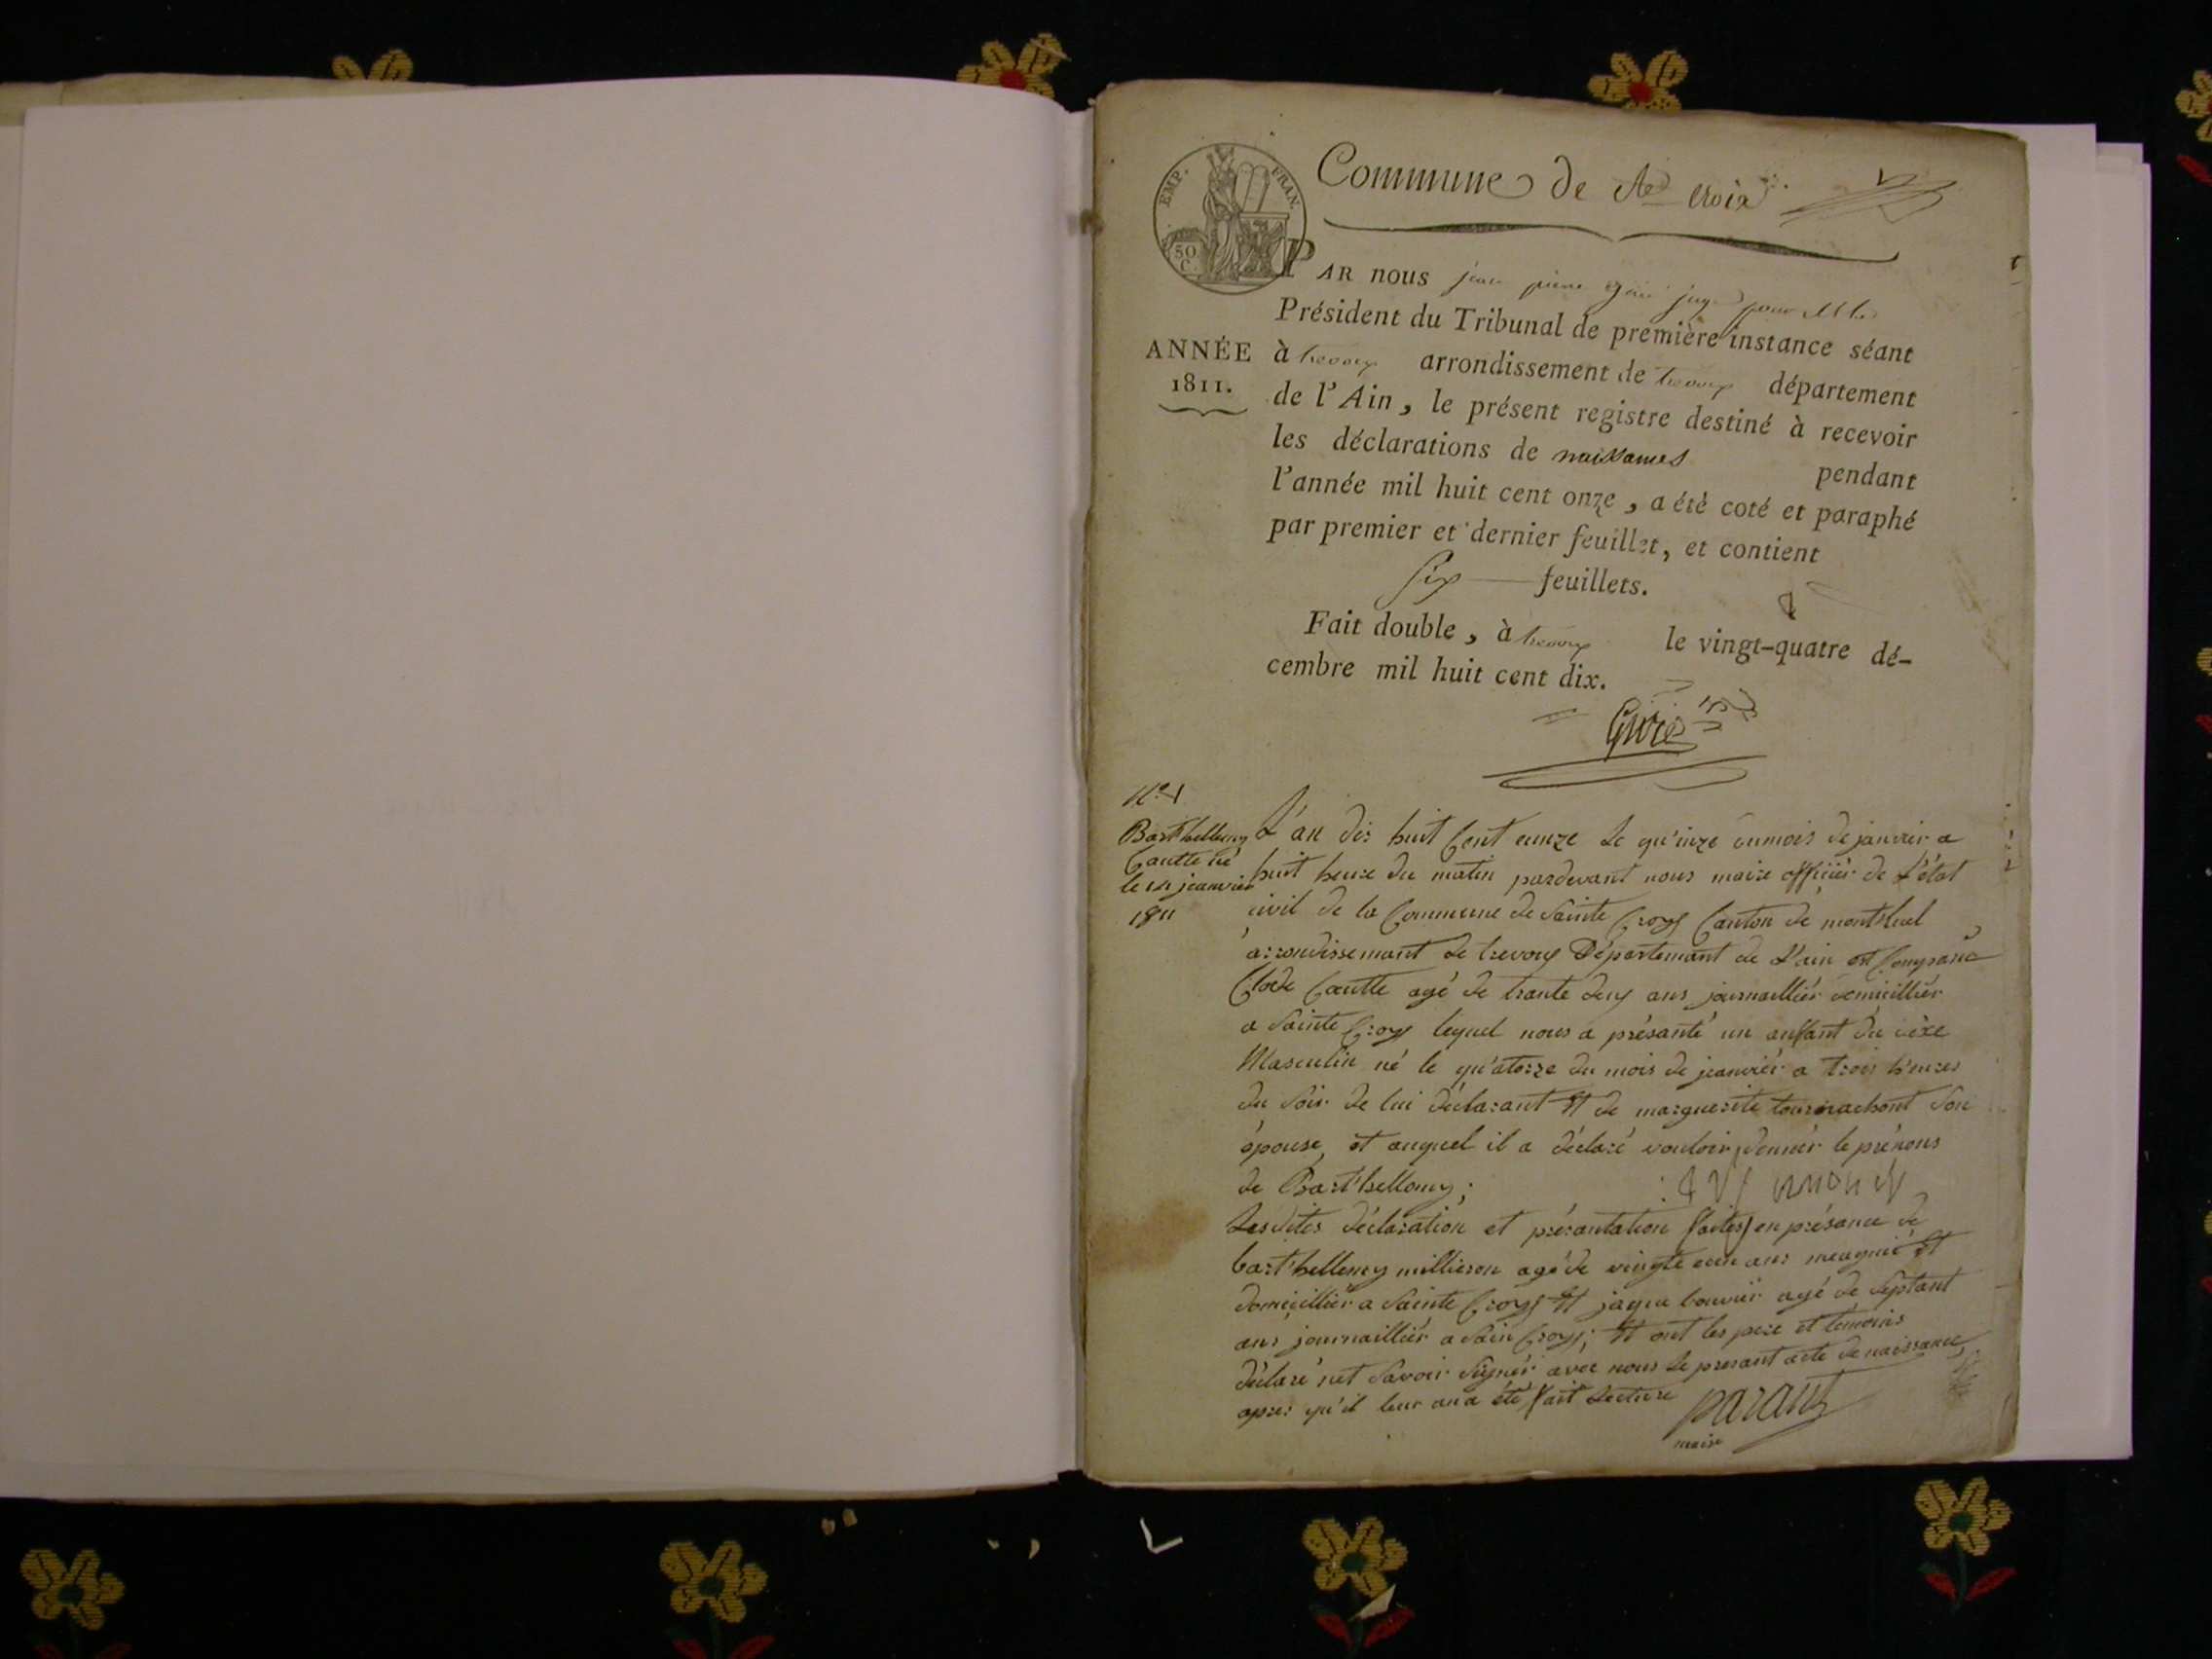 EMP. FRAN.
50
C.
Commune de Ste croix
PAR nous jean pierre juge pour M. le
Président du Tribunal de première instance séant
ANNÉE
1811.
à trevoux arrondissement de trevoux département
de l'Ain, le présent registre destiné à recevoir
les déclarations de naissances pendant
l'année mil huit cent onze, a été coté et paraphé
par premier et dernier feuillet, et contient
six feuillets.
Fait double, à trevoux le vingt-quatre dé-
cembre mil huit cent dix.
No 1
Barthellemy
Coutte né
le 14 jeanvier
1811
L'an dix huit Cent eunze Le qu'inze dumois de janvier a
huit heure du matin pardevant nous maire officiér de L'état
civil de la Commune de Sainte Croyx Canton de montluel
arrondissemant de trevoux Département de L'ain est Comparûe
Clode Coutte agé de trante deux ans journalliér domicilliér
a Sainte Croyx lequel nous a présanté un anffant du séxe
Masculin né le qu'atorze du mois de jeanviér a trois h'eures
du Soir de lui déclarant Et de marguerite tournachont Son
épouse, et auquel il a déclaré vouloir donnér le prénons
de Barthellomy;
Lesdites déclaration et présantation faites en présance de
barthellemy millieron agé de vingte eun ans meugnié Et
domicilliér a Sainte Croyx Et jaque bouvier agé de Septant
ans journailliér a Sain Croyx; Et ont les pere et témoins
déclaré net Savoir Signér avec nous Le presant acte de naissance,
apres qu'il leur an a été fait Lecture
parant
maire